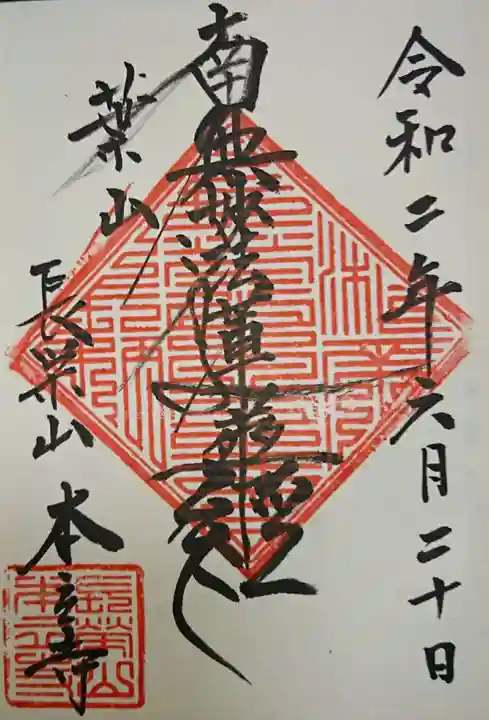 令和二年六月二十日
南無妙法蓮華経
葉山
長栄山 本立寺